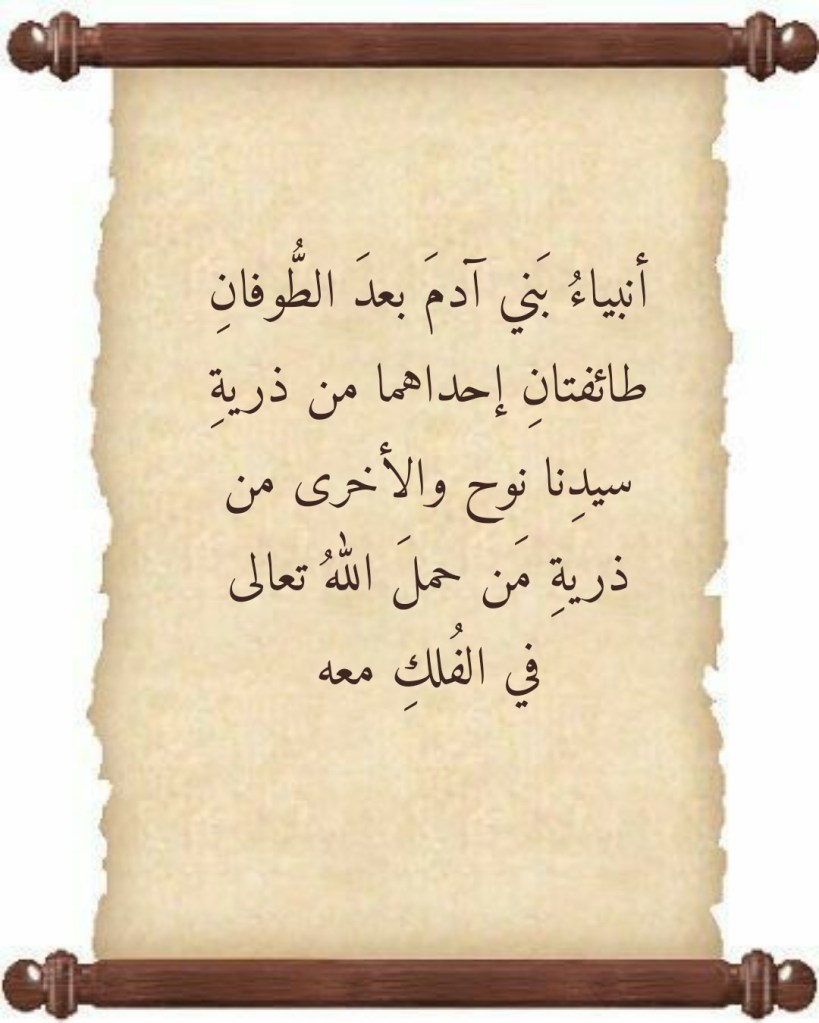 أنبياءُ بَني آدمَ بعدَ الطُّوفانِ
طائفتانِ إحداهما من ذريةِ
سيدِنا نوح والأخرى من
ذريةِ مَن حملَ اللهُ تعالى
في الفُلكِ معه